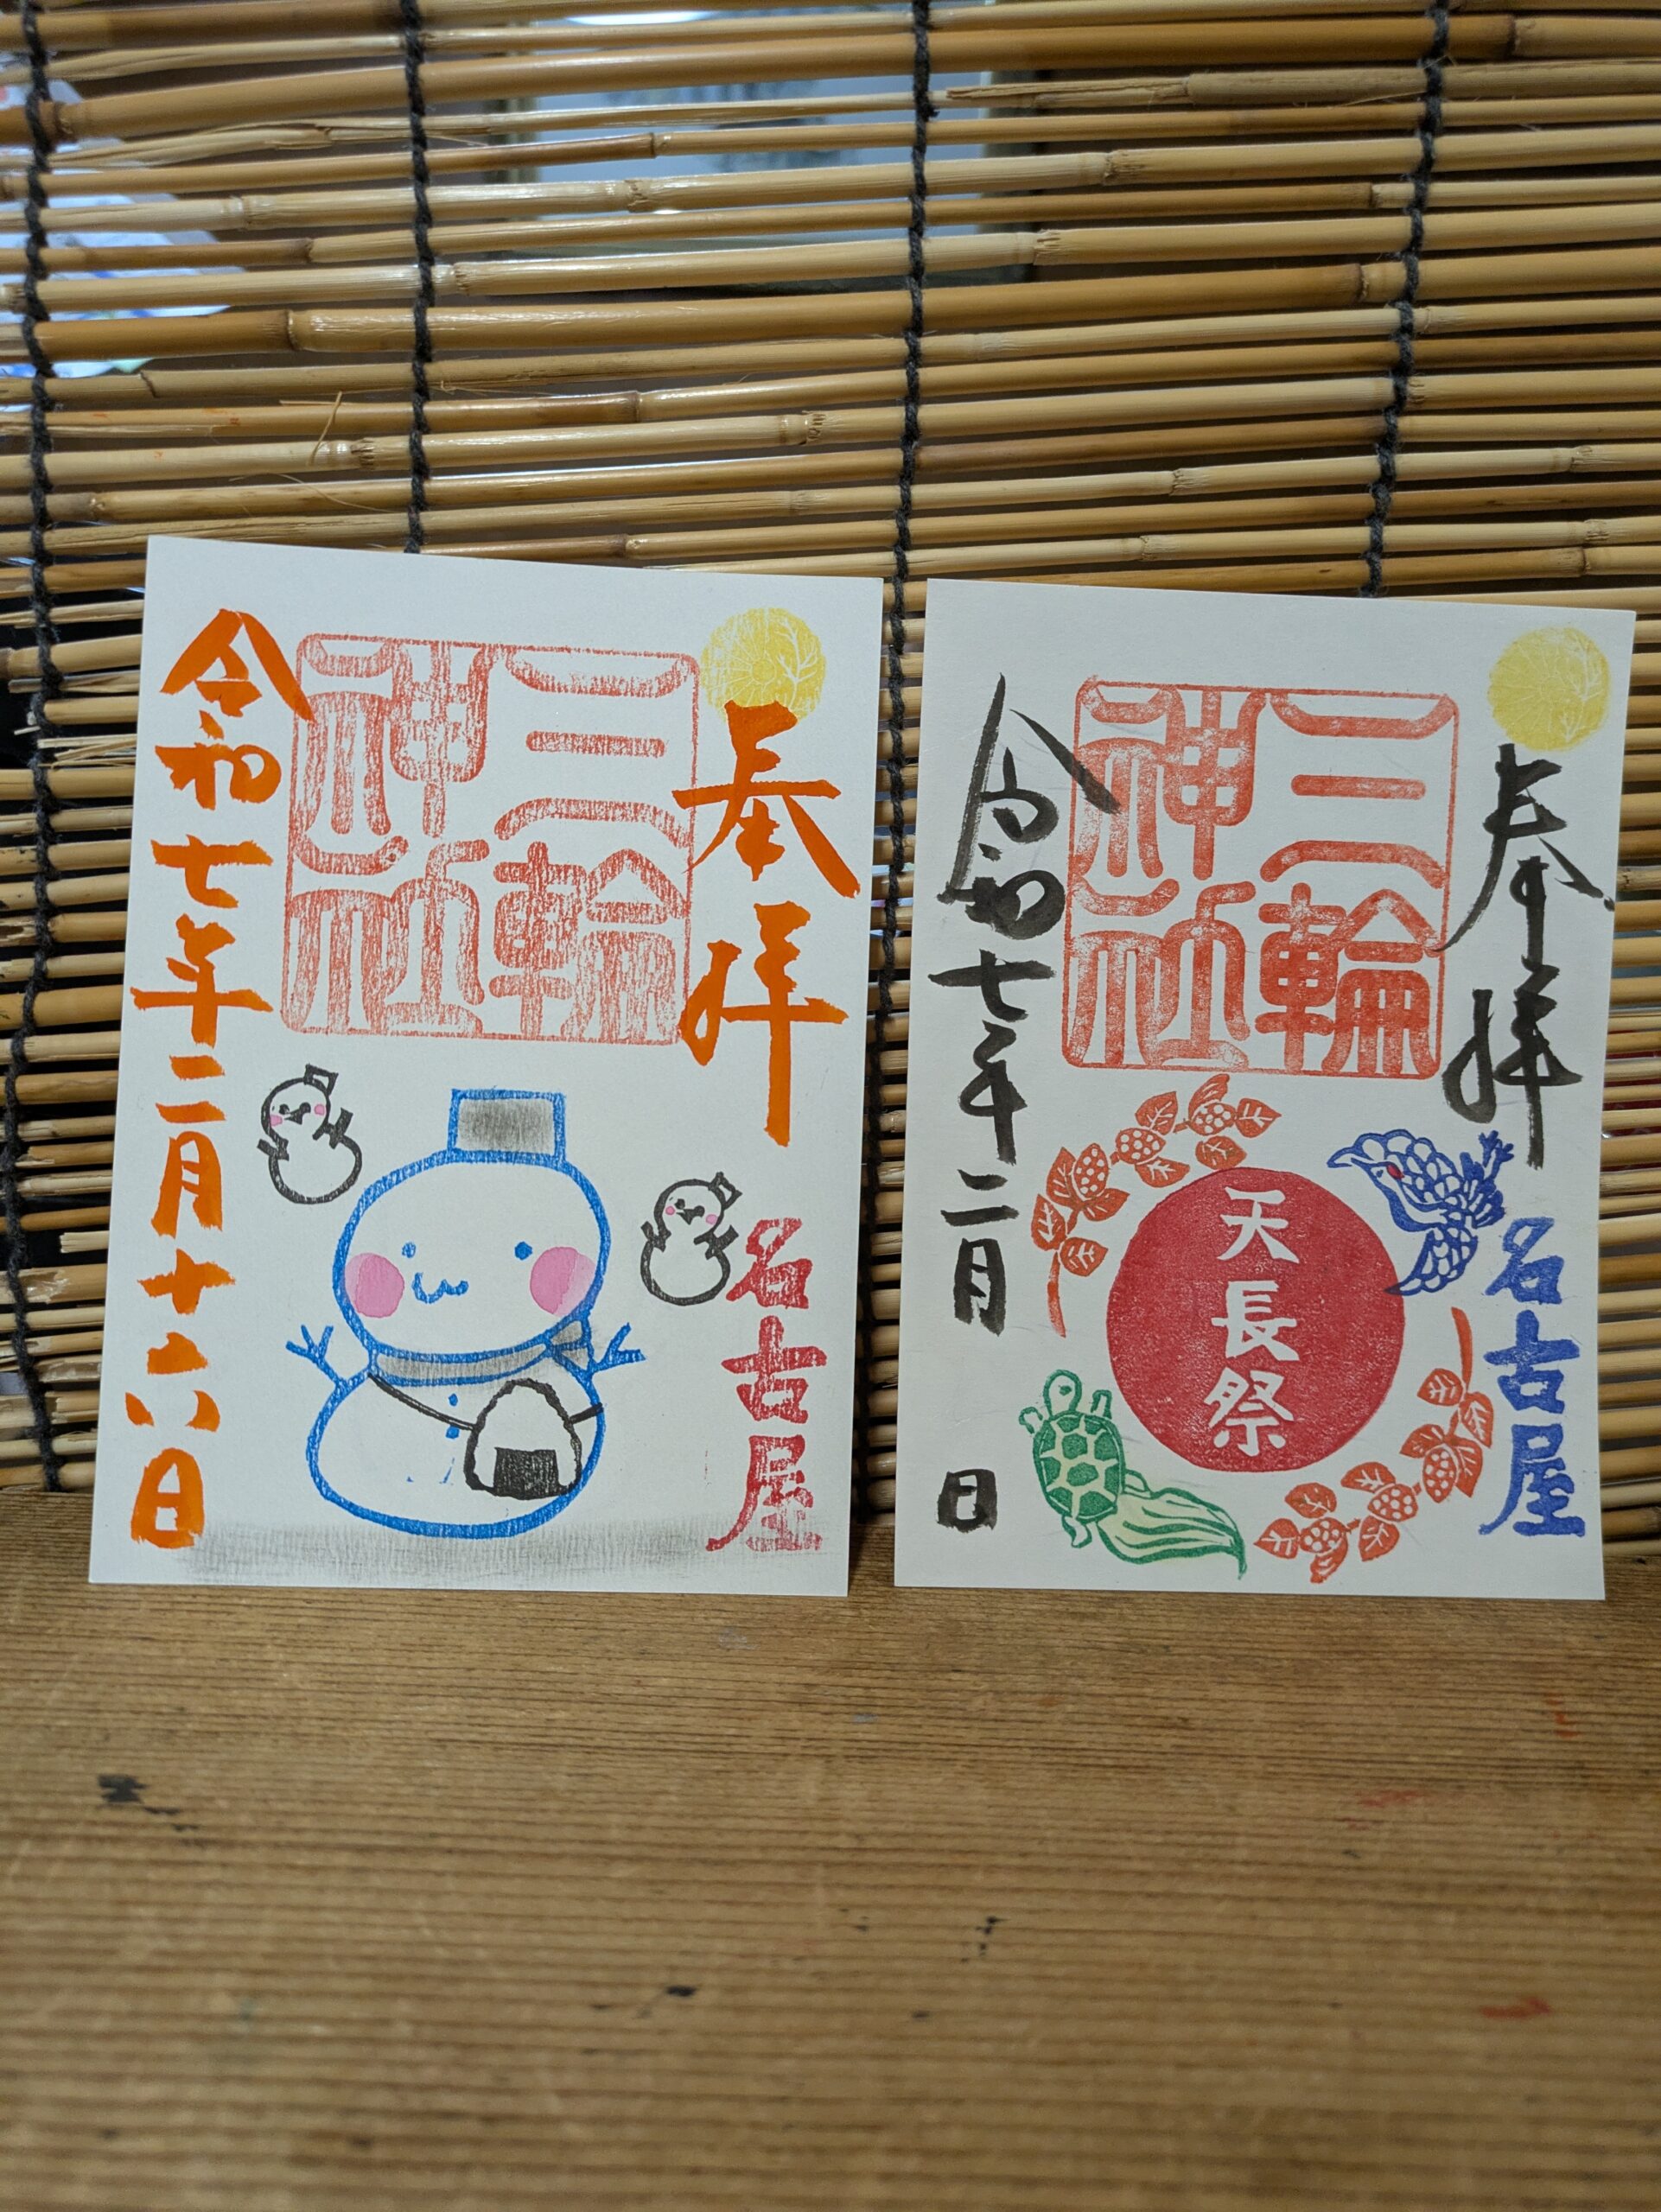 奉拝
三輪
神社
名古屋
令和七年二月十六日
奉拝
三輪
神社
天長祭
名古屋
令和七年二月
日